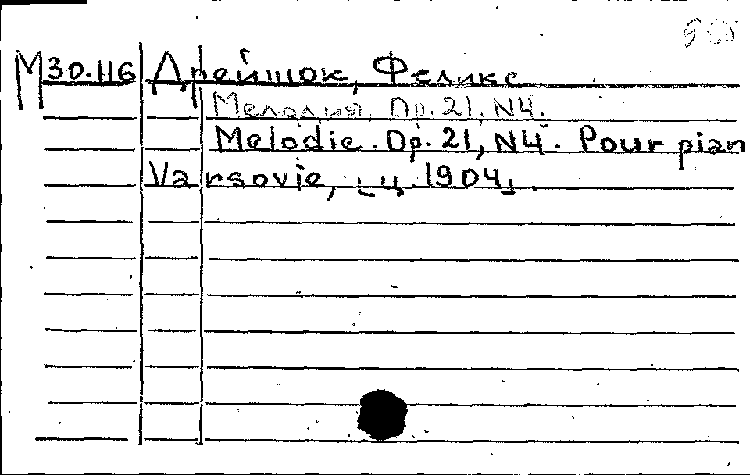 М30.116 Дрейшок, Феликс
Мелодия. Op. 21, N4.
Melodie. Op. 21, N4. Pour pian
Varsovie, [ц. 1904].